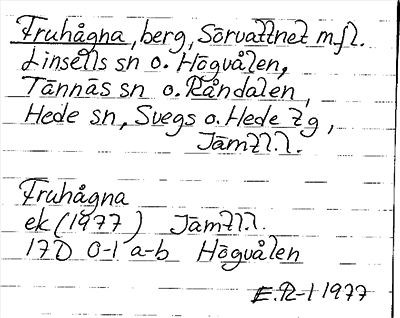 Fruhågna, berg, Sörvattnet mfl.
Linsells sn o. Högvålen,
Tännäs sn o. Råndalen,
Hede sn, Svegs o. Hede tg,
Jämtl.l.
Fruhågna
ek (1977) Jämtl.l.
17D 0-1 a-b Högvålen
E.R-l 1977